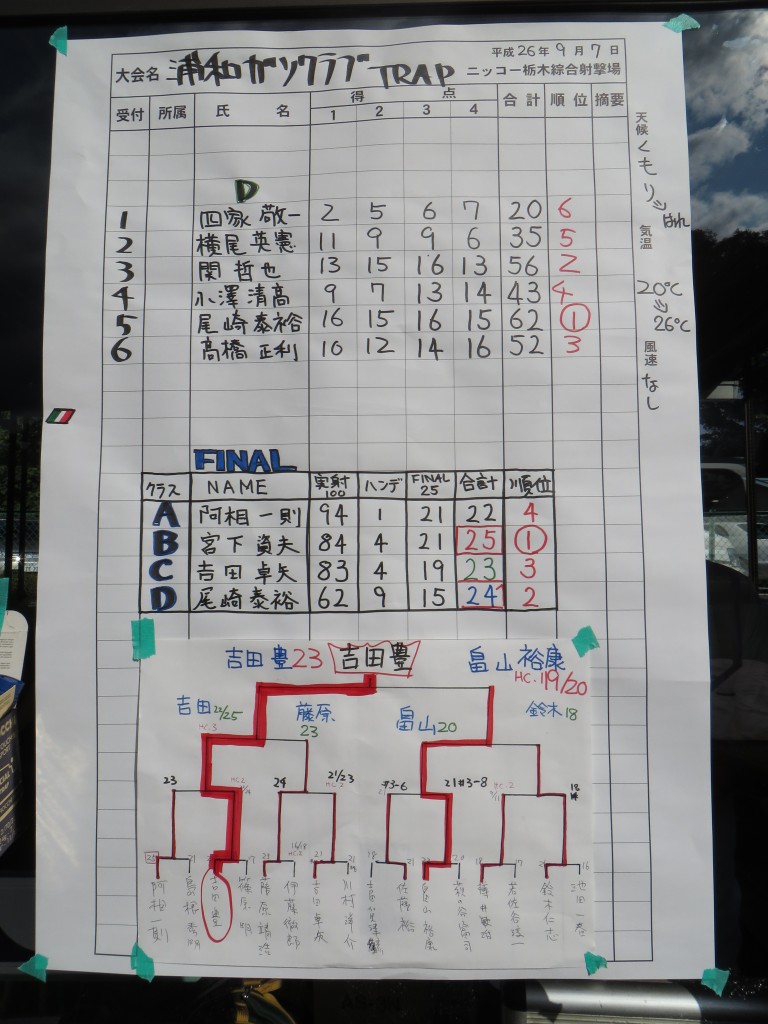 平成 26 年 9 月 7 日
大会名 浦和ガンクラブ TRAP ニッコー栃木綜合射撃場
受付 所属 氏 名 得 点 合計 順位 摘要
1 2 3 4
D
1 四家 敬一 2 5 6 7 20 6
2 横尾 英憲 11 9 9 6 35 5
3 関 哲也 13 15 16 13 56 2
4 小澤 清高 9 7 13 14 43 4
5 尾崎 泰裕 16 15 16 15 62 1
6 高橋 正利 10 12 14 16 52 3
天候 くもり⇒はれ
気温 20℃⇒26℃
風速 なし
FINAL
クラス NAME 実射100 ハンデ FINAL25 合計 順位
A 阿相 一則 94 1 21 22 4
B 宮下 資夫 84 4 21 25 1
C 吉田 卓矢 83 4 19 23 3
D 尾崎 泰裕 62 9 15 24 2
吉田 豊 23 吉田 豊 畠山 裕康
HC.1 19/20
吉田 22/25 藤原 23 畠山 20 鈴木 18
HC.3
23 24 21/23 #3-6 21#3-8 18
阿相一則 吉田豊 篠原明 藤原靖浩 吉田卓矢 川村洋介 佐藤裕 畠山裕康 鈴木仁志